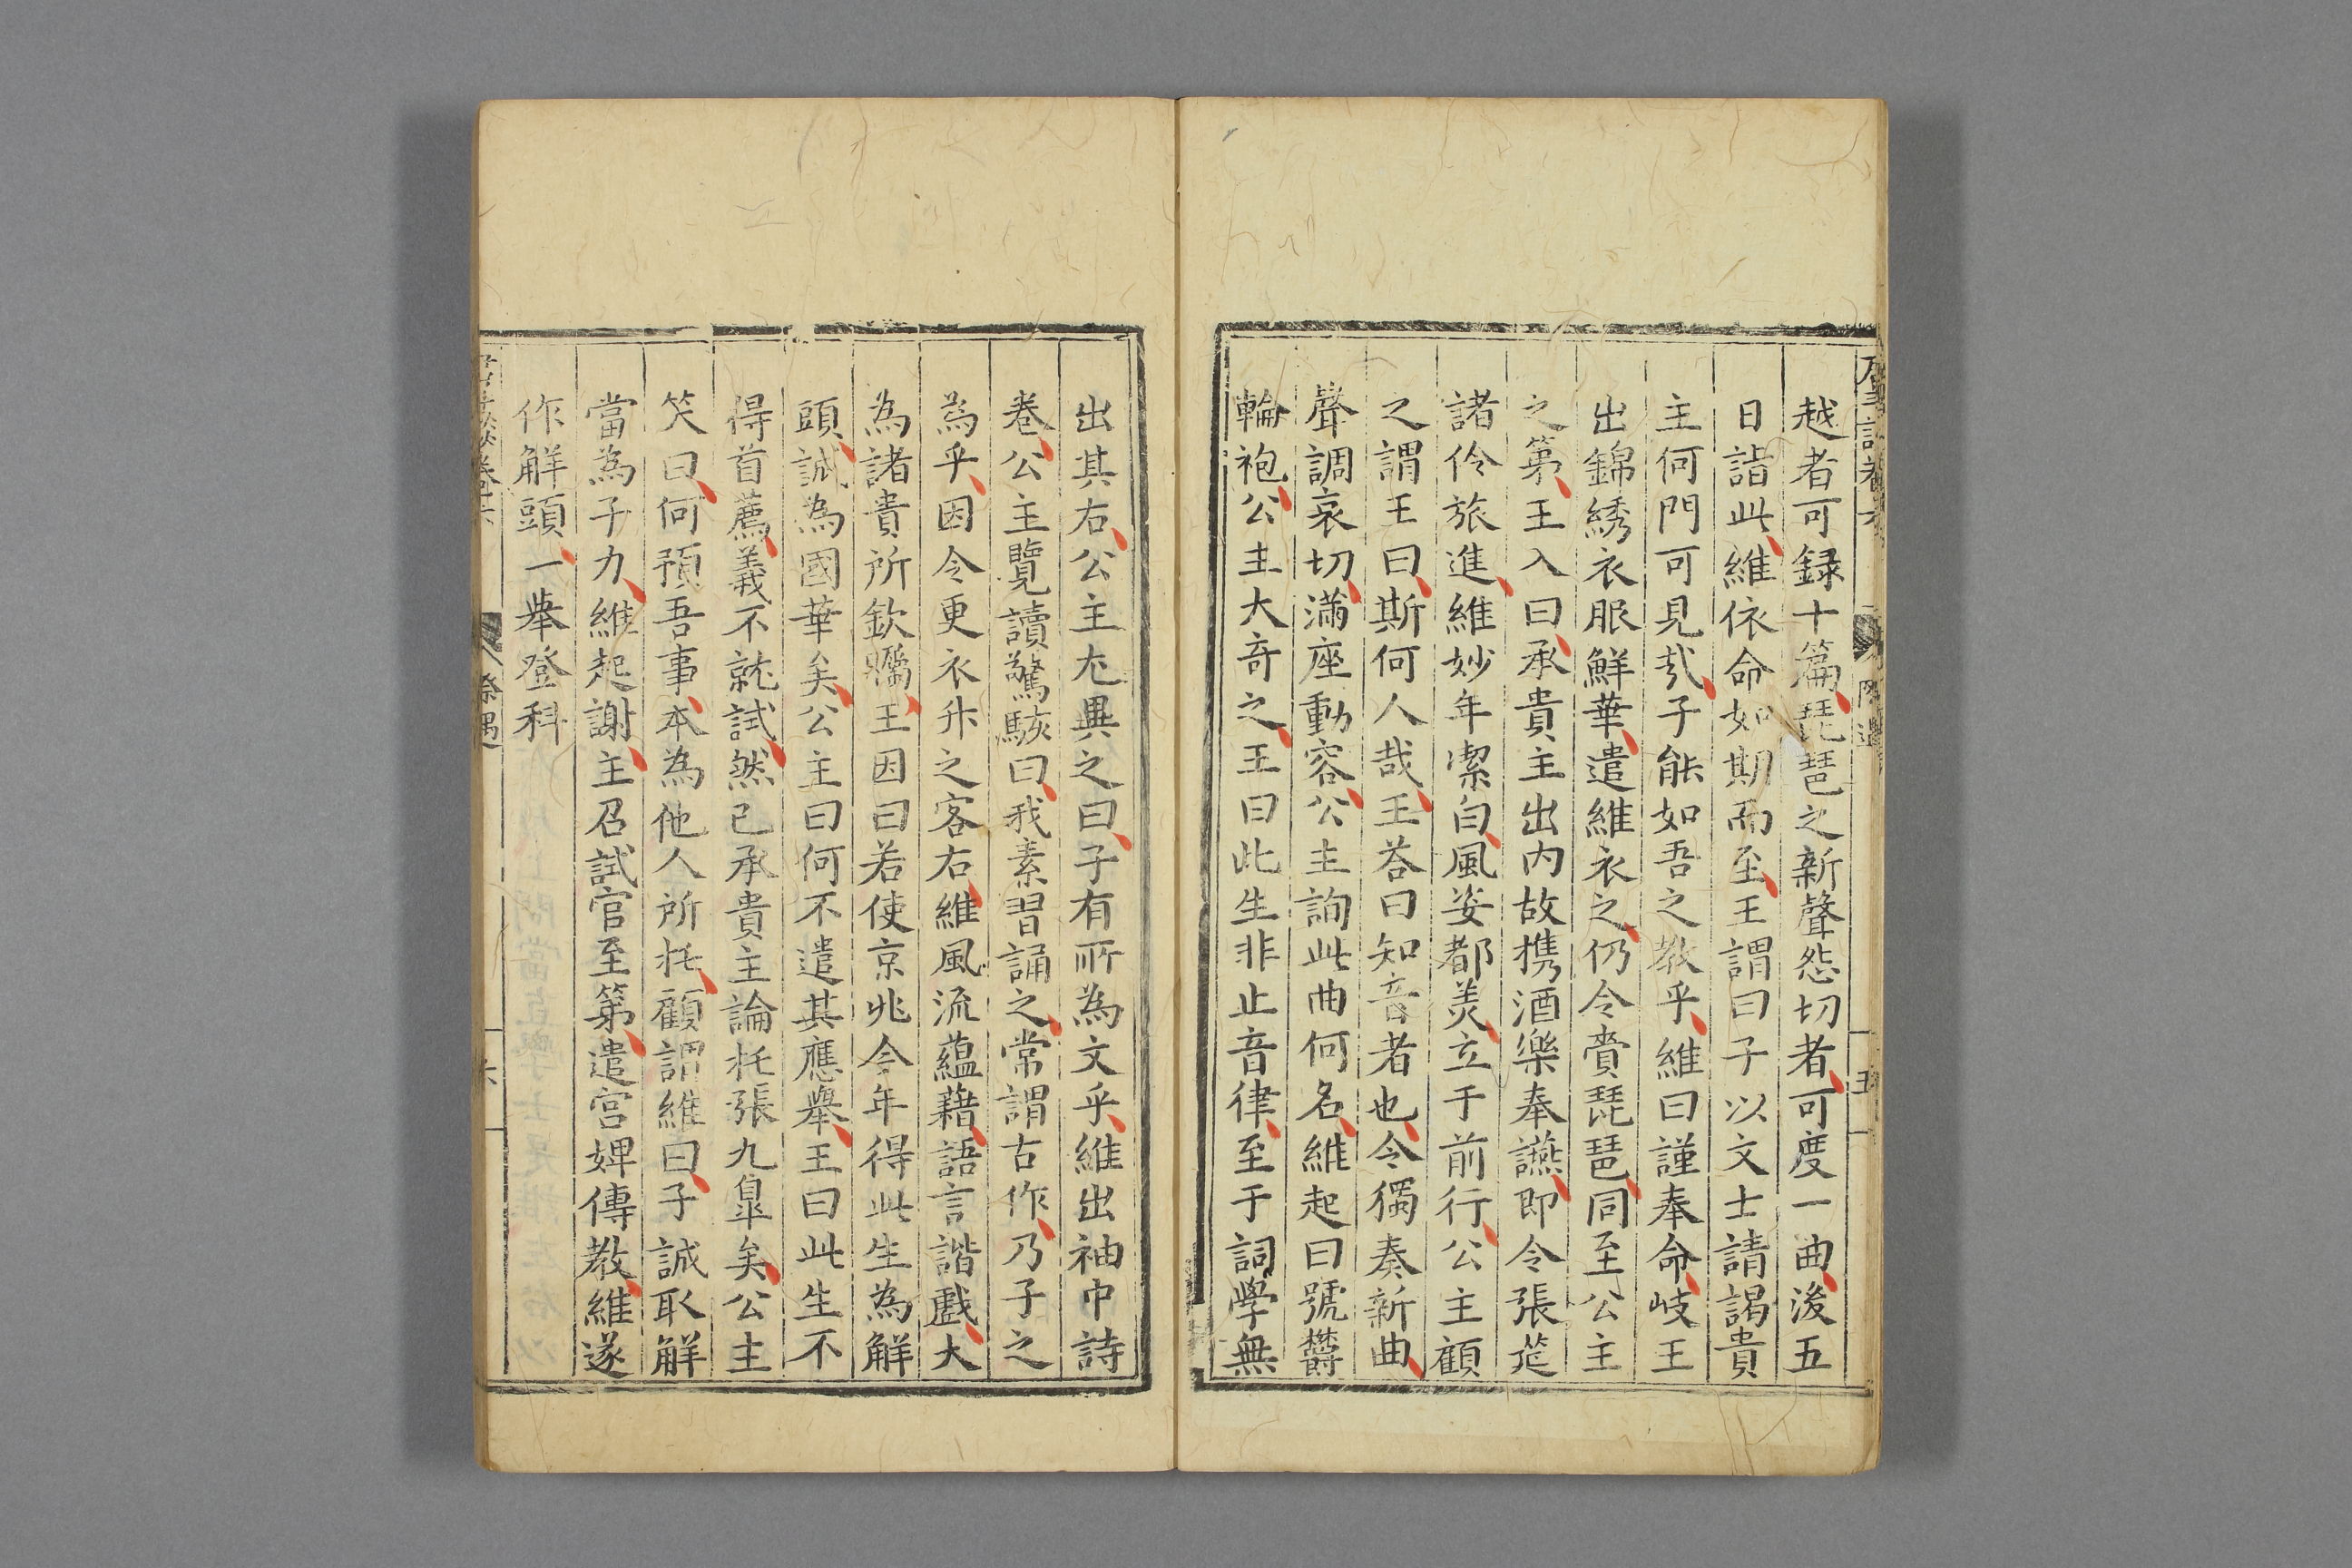 越者可録十篇琵琶之新聲怨切者可度一曲後五
日詣此維依命如期而至王謂曰子以文士請謁貴
主何門可見哉子能如吾之教乎維曰謹奉命岐王
出錦綉衣服鮮華遣維衣之仍令賫琵琶同至公主
之第王入曰承貴主出内故携酒樂奉讌即令張筵
諸伶旅進維妙年潔白風姿都美立于前行公主顧
之謂王曰斯何人哉王荅曰知音者也令獨奏新曲
聲調哀切滿座動容公主詢此曲何名維起曰號欝
輪袍公主大奇之王曰此生非止音律至于詞學無
出其右公主尤異之曰子有所為文乎維出袖中詩
卷公主覽讀驚駭曰我素習誦之常謂古作乃子之
為乎因令更衣升之客右維風流蘊藉語言諧戲大
為諸貴所欽矚王因曰若使京兆今年得此生為解
頭誠為國華矣公主曰何不遣其應舉王曰此生不
得首薦義不就試然已承貴主論托張九皐矣公主
笑曰何預吾事本為他人所托顧謂維曰子誠取解
當為子力維起謝主召試官至第遣宮婢傳教維遂
作解頭一舉登科